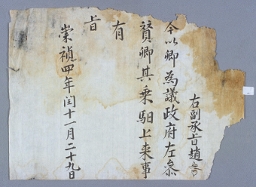 右副承旨趙
今以卿為議政府左參
贊卿其乘馹上來事
有
旨
崇禎四年閏十一月二十九日